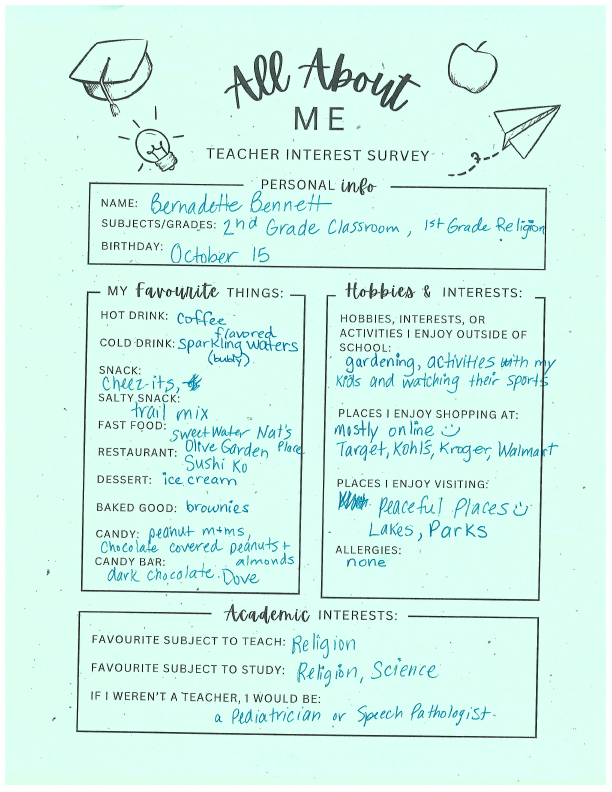 All About
ME
TEACHER INTEREST SURVEY
PERSONAL info
NAME: Bernadette Bennett
SUBJECTS/GRADES: 2nd Grade Classroom, 1st Grade Religion
BIRTHDAY: October 15
MY Favourite THINGS:
HOT DRINK: coffee
COLD DRINK: flavored sparkling waters
(bubly)
SNACK:
cheez-its,
SALTY SNACK:
trail mix
FAST FOOD: sweet Water Nat's Place
RESTAURANT: Olive Garden
Sushi Ko
DESSERT: ice cream
BAKED GOOD: brownies
CANDY: peanut m+ms,
Chocolate covered peanuts +
almonds
CANDY BAR:
dark chocolate. Dove
Hobbies & INTERESTS:
HOBBIES, INTERESTS, OR
ACTIVITIES I ENJOY OUTSIDE OF
SCHOOL:
gardening, activities with my
kids and watching their sports
PLACES I ENJOY SHOPPING AT:
mostly online
Target, Kohl's, Kroger, Walmart
PLACES I ENJOY VISITING:
peaceful places
Lakes, Parks
ALLERGIES:
none
Academic INTERESTS:
FAVOURITE SUBJECT TO TEACH: Religion
FAVOURITE SUBJECT TO STUDY: Religion, Science
IF I WEREN'T A TEACHER, I WOULD BE:
a Pediatrician or Speech Pathologist.